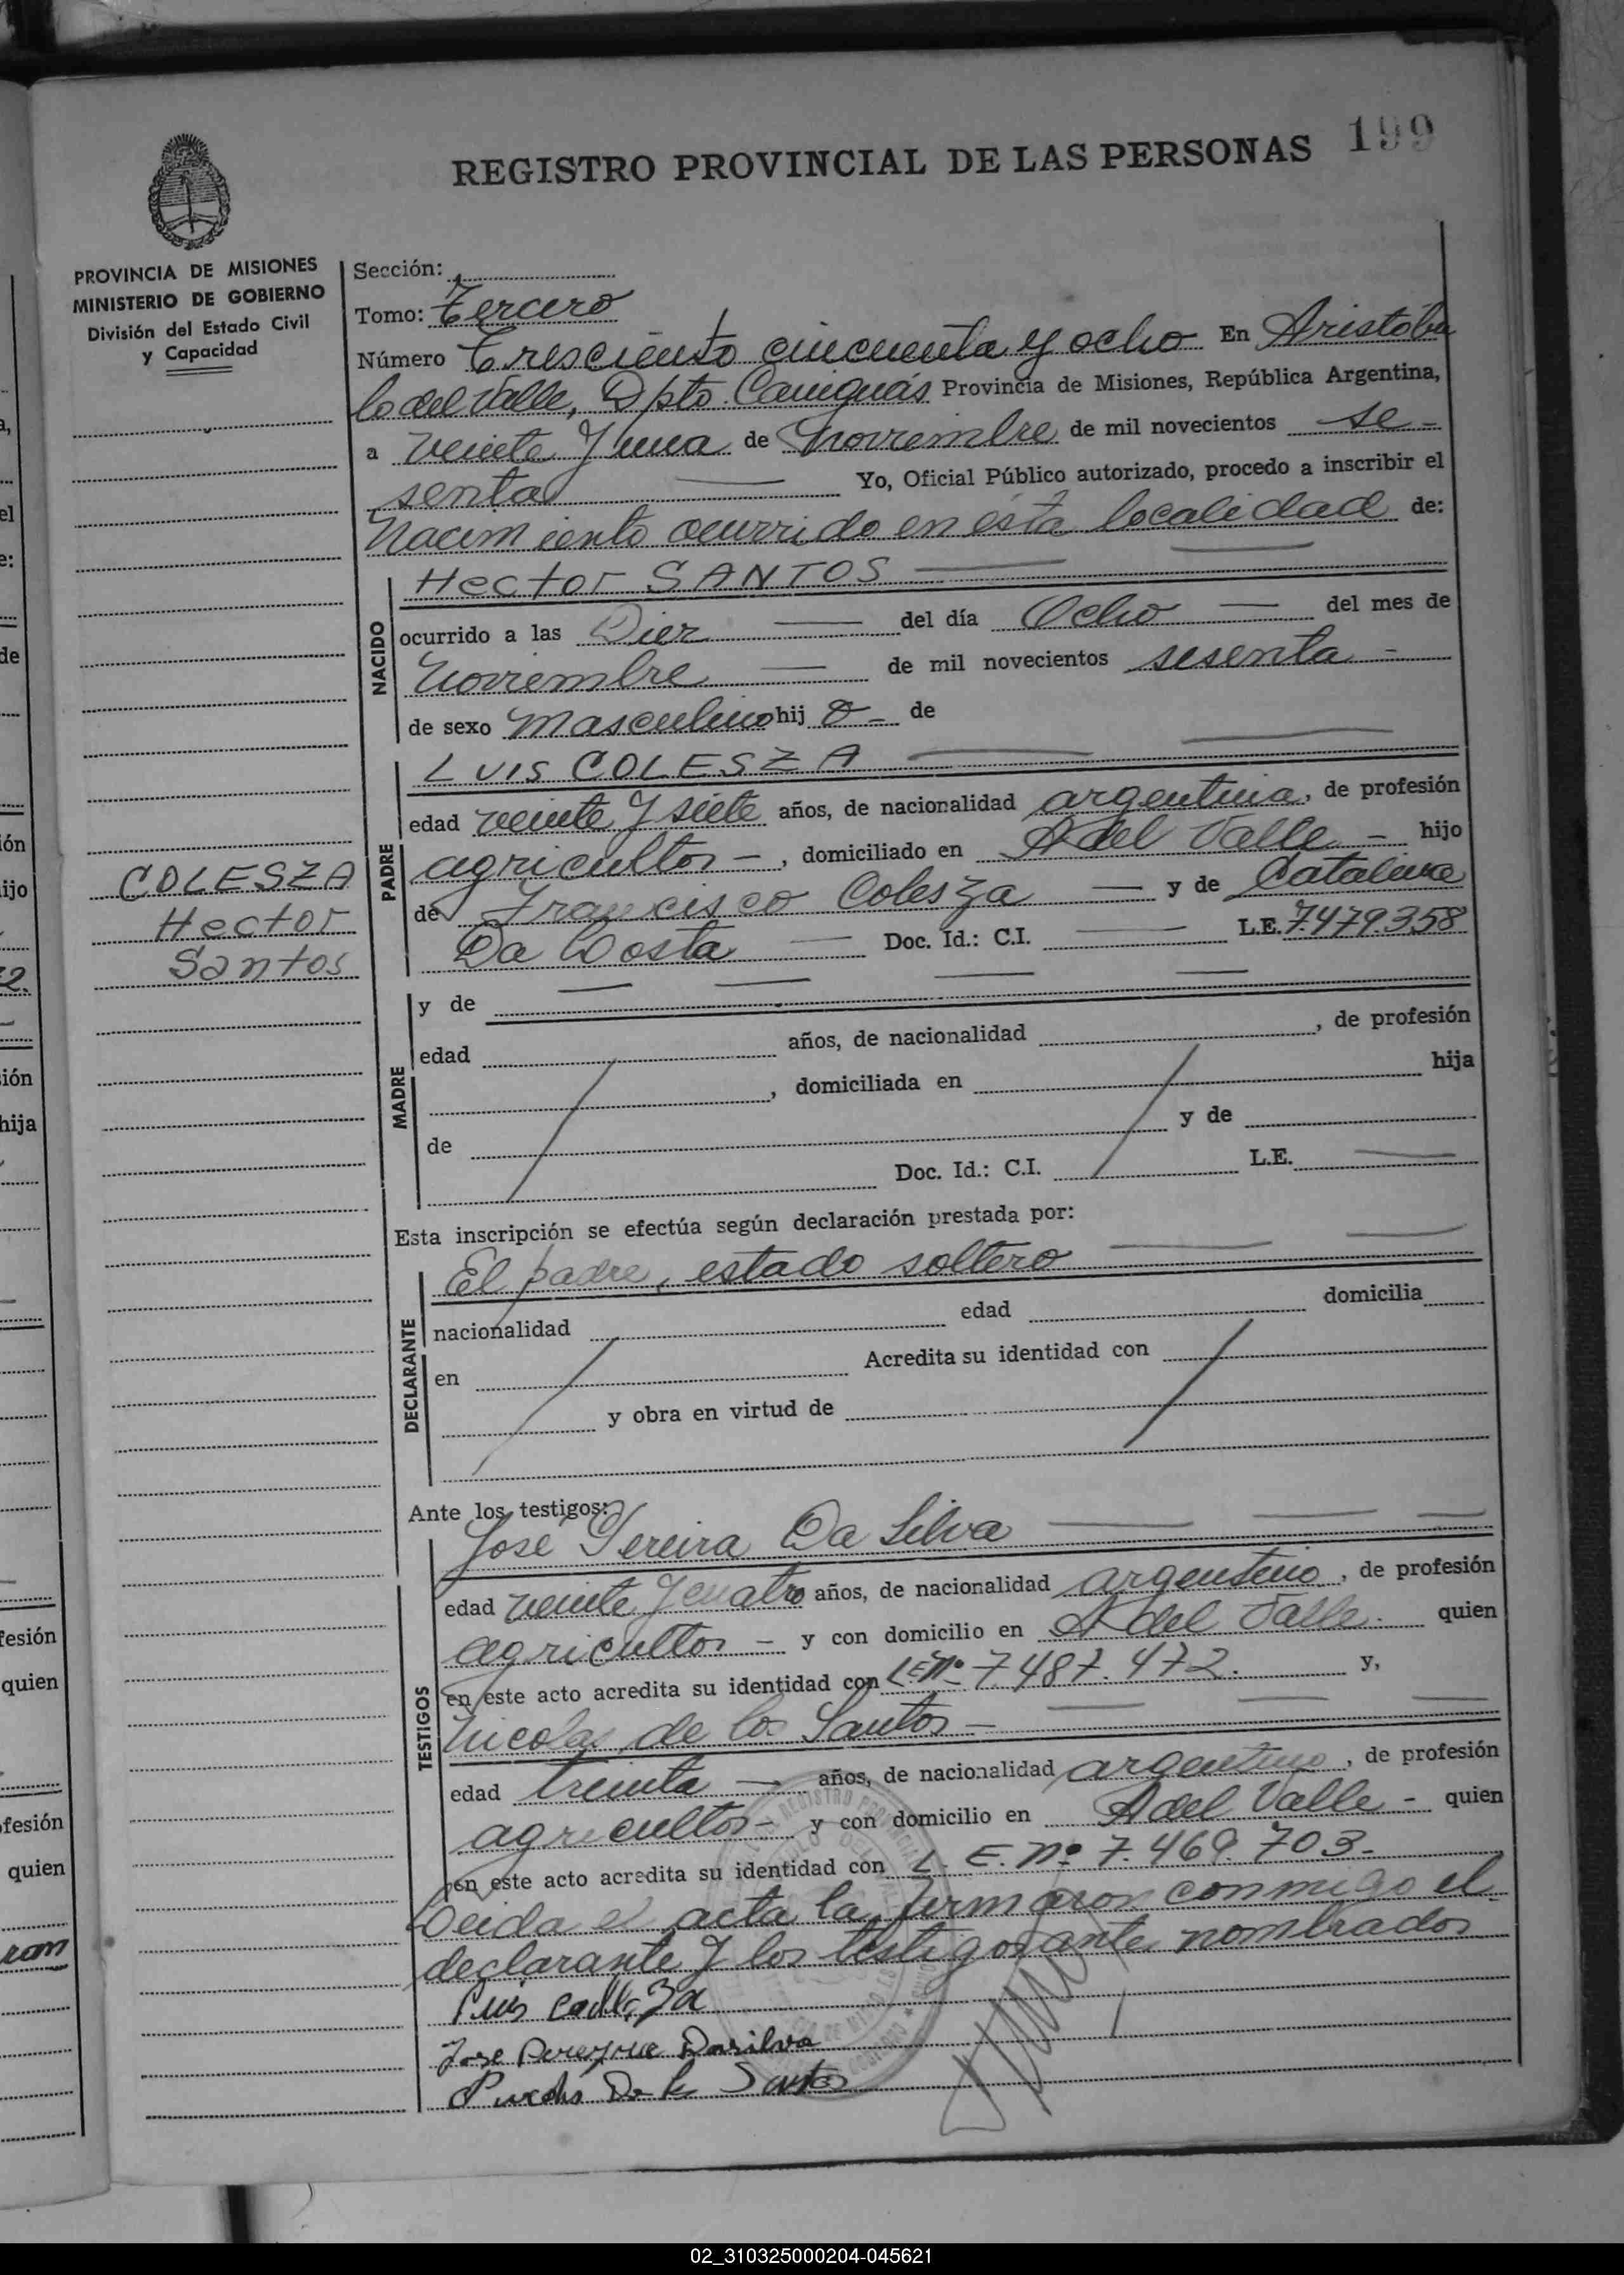 199
REGISTRO PROVINCIAL DE LAS PERSONAS
PROVINCIA DE MISIONES
MINISTERIO DE GOBIERNO
División del Estado Civil
y Capacidad
COLESZA
Hector
Santos
Sección:
Tomo: Tercero
Número Tresciento cincuenta y ocho En Aristóbu
lo del Valle, Dpto. Cainguás Provincia de Misiones, República Argentina,
a veinte y una de Noviembre de mil novecientos se-
senta Yo, Oficial Público autorizado, procedo a inscribir el
Nacimiento ocurrido en ésta localidad de:
NACIDO
Hector SANTOS
ocurrido a las Diez del día Ocho del mes de
Noviembre de mil novecientos sesenta -
de sexo Masculino hij o - de
PADRE
LUIS COLESZA
edad veinte y siete años, de nacionalidad argentina, de profesión
agricultor -, domiciliado en A del Valle - hijo
de Francisco Colesza y de Catalina
Da Costa Doc. Id.: C.I. L.E. 7.479.358
MADRE
y de
edad años, de nacionalidad , de profesión
, domiciliada en hija
de y de
Doc. Id.: C.I. L.E.
Esta inscripción se efectúa según declaración prestada por:
DECLARANTE
El padre, estado soltero
nacionalidad edad domicilia
en Acredita su identidad con
y obra en virtud de
Ante los testigos:
TESTIGOS
José Pereira Da Silva
edad veinte y cuatro años, de nacionalidad argentino, de profesión
agricultor - y con domicilio en A del Valle. quien
en este acto acredita su identidad con L.E. Nº 7.487.472. y,
Nicolas de los Santos -
edad treinta - años, de nacionalidad argentino, de profesión
agricultor - y con domicilio en A del Valle - quien
en este acto acredita su identidad con L. E. Nº 7.469.703.
Leida el acta la firmaron conmigo el
declarante y los testigos ante nombrados
Luis
Jose Dasilva
De Santos
02_310325000204-045621